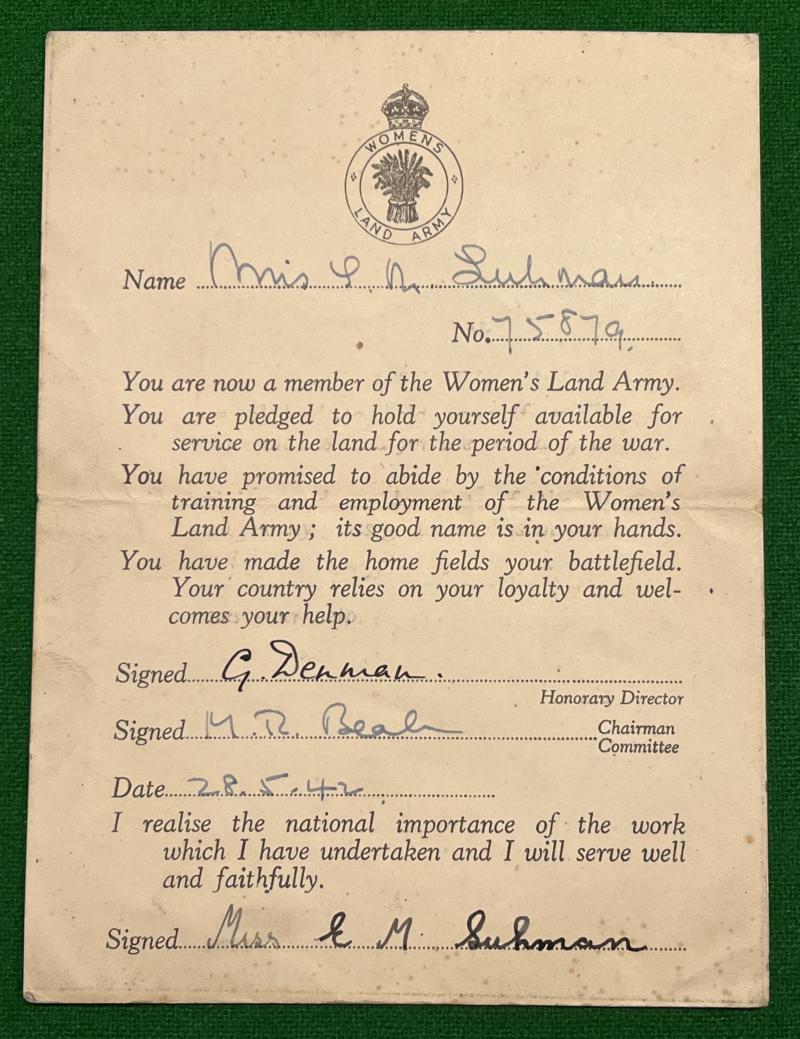 WOMENS
LAND ARMY
Name Miss E. M. Suhman
No. 75879.
You are now a member of the Women's Land Army.
You are pledged to hold yourself available for
service on the land for the period of the war.
You have promised to abide by the conditions of
training and employment of the Women's
Land Army ; its good name is in your hands.
You have made the home fields your battlefield.
Your country relies on your loyalty and wel-
comes your help.
Signed G. Denman.
Honorary Director
Signed M. R.
Chairman
Committee
Date 28.5.42
I realise the national importance of the work
which I have undertaken and I will serve well
and faithfully.
Signed Miss E M Suhman